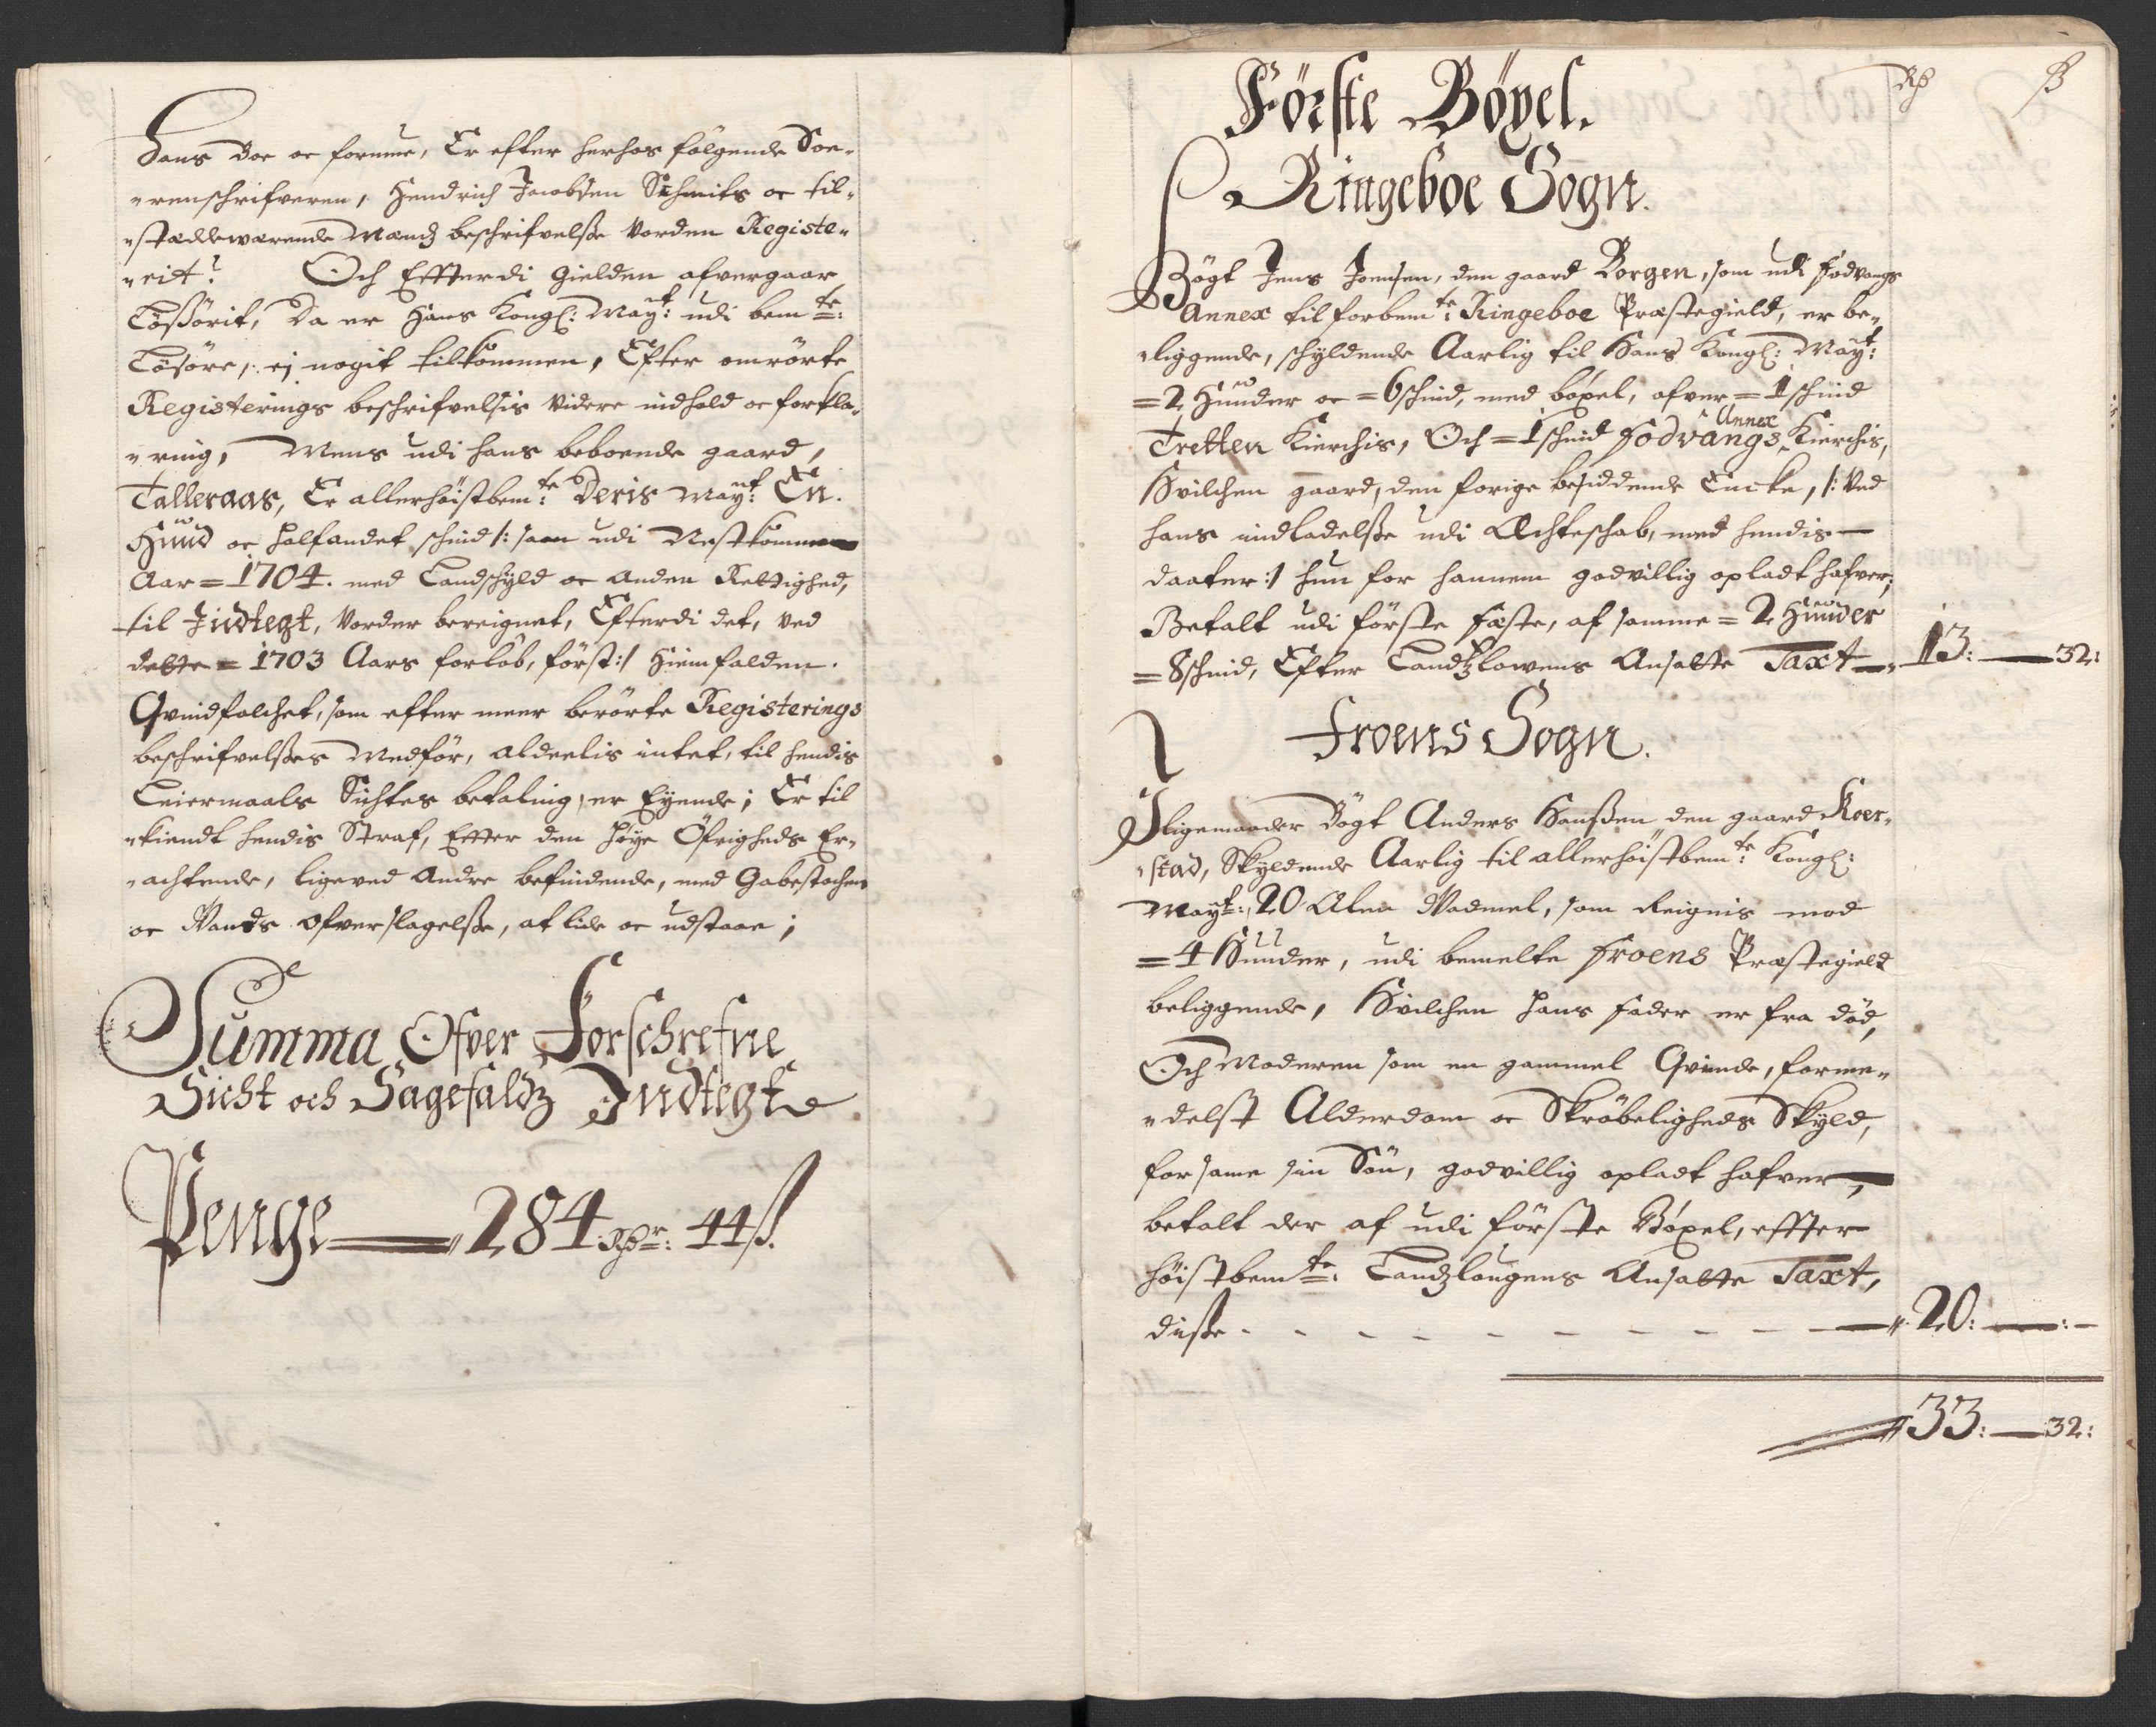 Hans Boe oc formue, Er efter herhos følgende Soe-
"renschrifveren, Hendrich Jacobsen Schmits oc til-
"stædeværende Mænds beschrifvelsse vorden Registe-
"rit? Och Effterdi Gielden ofvergaar
Løssørit, Da er Hans Kongl: May^t: udi bem^te:
Løsøre, ej nogit tilkommen, Efter omrørte
Registerings beschrifvelsis videre indhold oc forkla-
"ring, Mens udi hans beboende gaard,
Talleraas, Er allerhöistbem^te: Deris May^t: En
Hund oc halfandet schind /: saa udi Nestkommende
Aar = 1704. med Landschyld oc anden Rettighed,
til Indtegt, vorder bereignet, Efterdi det, ved
dette = 1703 Aars forløb, først :/ Hiemfalden.
Qvindfolchet, som efter meer berørte Registerings
beschrifvelsses Medför, aldeelis intet, til hendis
Leiermaals Sichtes betaling, er Eyende; Er til
"kiendt hendis Straf, Effter den høye Öfrigheds Er-
"achtende, ligeved Andre befindende, med Gabestochen
oc Vands ofverslagelsse, at lide oc udstaae;
Summa Ofver Forschrefne
Sicht och Sagefaldz Indtegt
Penge — 284 Rdr: 44 ß.
Rd ß
Förste Böxel.
Ringeboe Sogn.
Bögt Jens Joensen, den gaard Borgen, som udi Fodvangs
Annex til forbem^te: Ringeboe Præstegield, er be-
"liggende, schyldende Aarlig til Hans Kongl: May^t:
= 2 Hunder oc = 6 schind, med böxel, ofver = 1 schind
Annex
Tretten Kierchis, Och = 1 schind Fodvangs Kierchis,
Hvilchen gaard, den forige besiddende Encke, /: Ved
hans indladelsse udi Ächteschab, med hendis
daater :/ hun for hannem godvillig opladt hafver;
Betalt udi förste fæste, af samme = 2 Hunder
= 8 schind, Efter Landzlowens Ansatte Taxt — 13: — 32:
Froens Sogn.
Iligemaader Bögt Anders Hanssen den gaard Koer-
"stad, Skyldende Aarlig til allerhöistbem^te: Kongl:
May^t: 20 Alen Vadmel, som Reignis mod
= 4 Hunder, udi bemelte Froens Præstegield
beliggende, Hvilchen hans Fader er fra död,
Och Moderen som en gammel Qvinde, forme-
"delst Alderdom oc Skröbeligheds Skyld,
for same sin Sön, godvillig opladt hafver,
betalt der af udi förste Böxel, effter
höistbem^te: Landzlougens Ansatte Taxt,
disse - - - - - - - - - — 20: — : —
33: — 32: